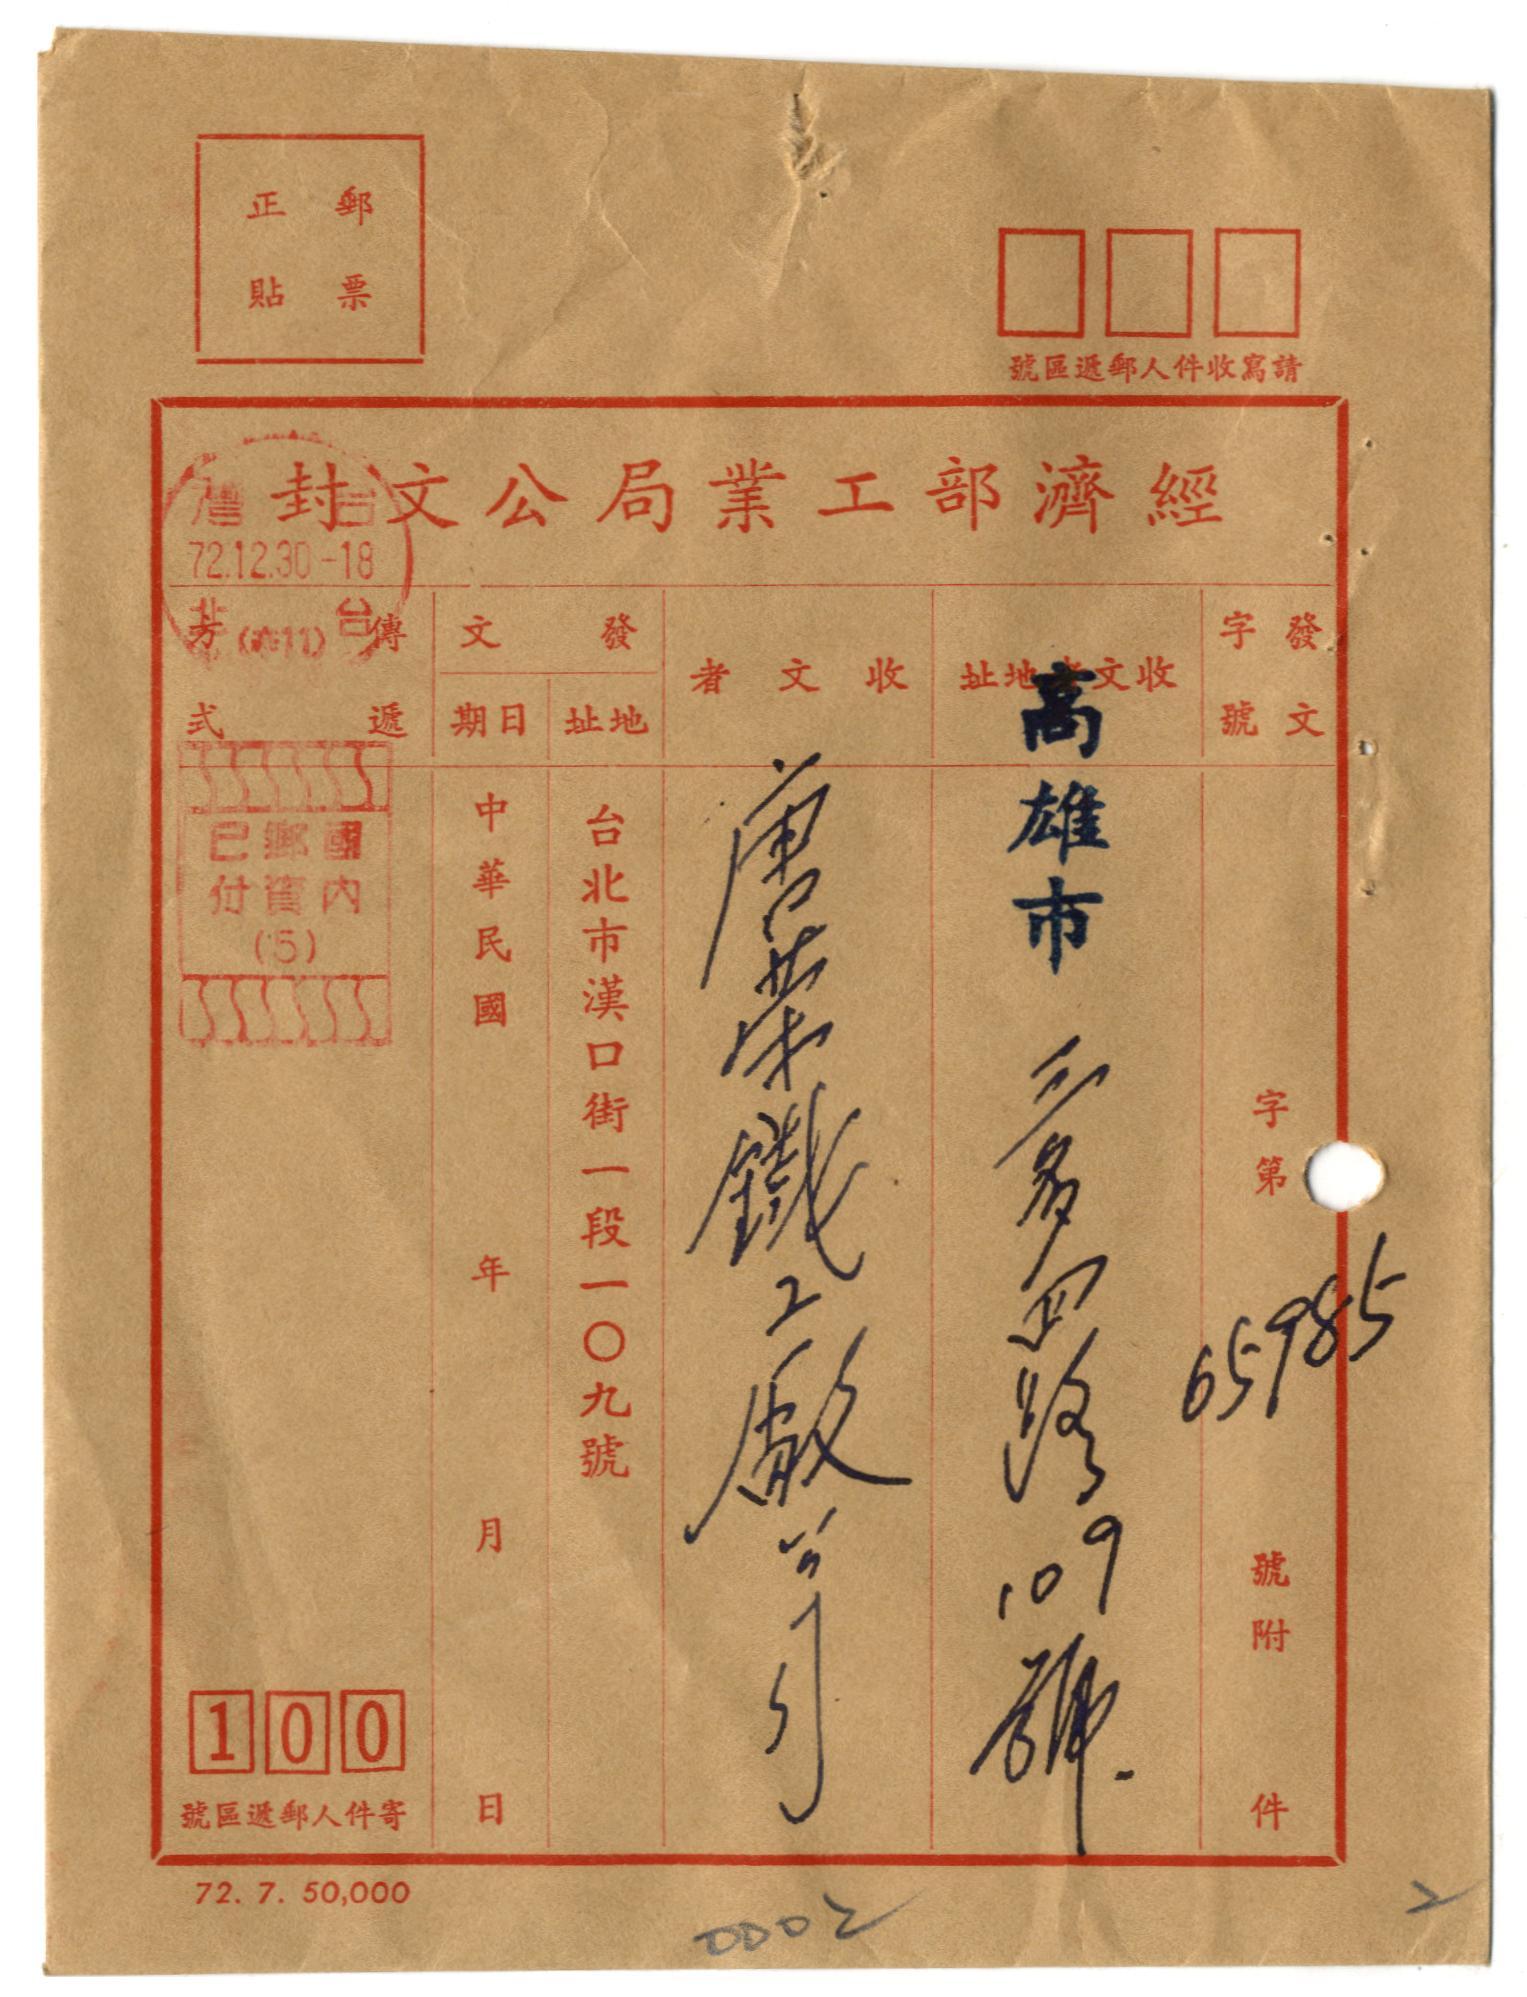 郵票
正貼
請寫收件人郵遞區號
經濟部工業局公文封
發文
字號
字第
65985
號附
件
收文者地址
高雄市
三多四路109號
收文者
唐榮鐵工廠公司
發文
地址
台北市漢口街一段一〇九號
日期
中華民國
年
月
日
傳遞
方式
台
72.12.30-18
台北
國內
郵資
已付
(5)
100
寄件人郵遞區號
72. 7. 50,000
0002
2